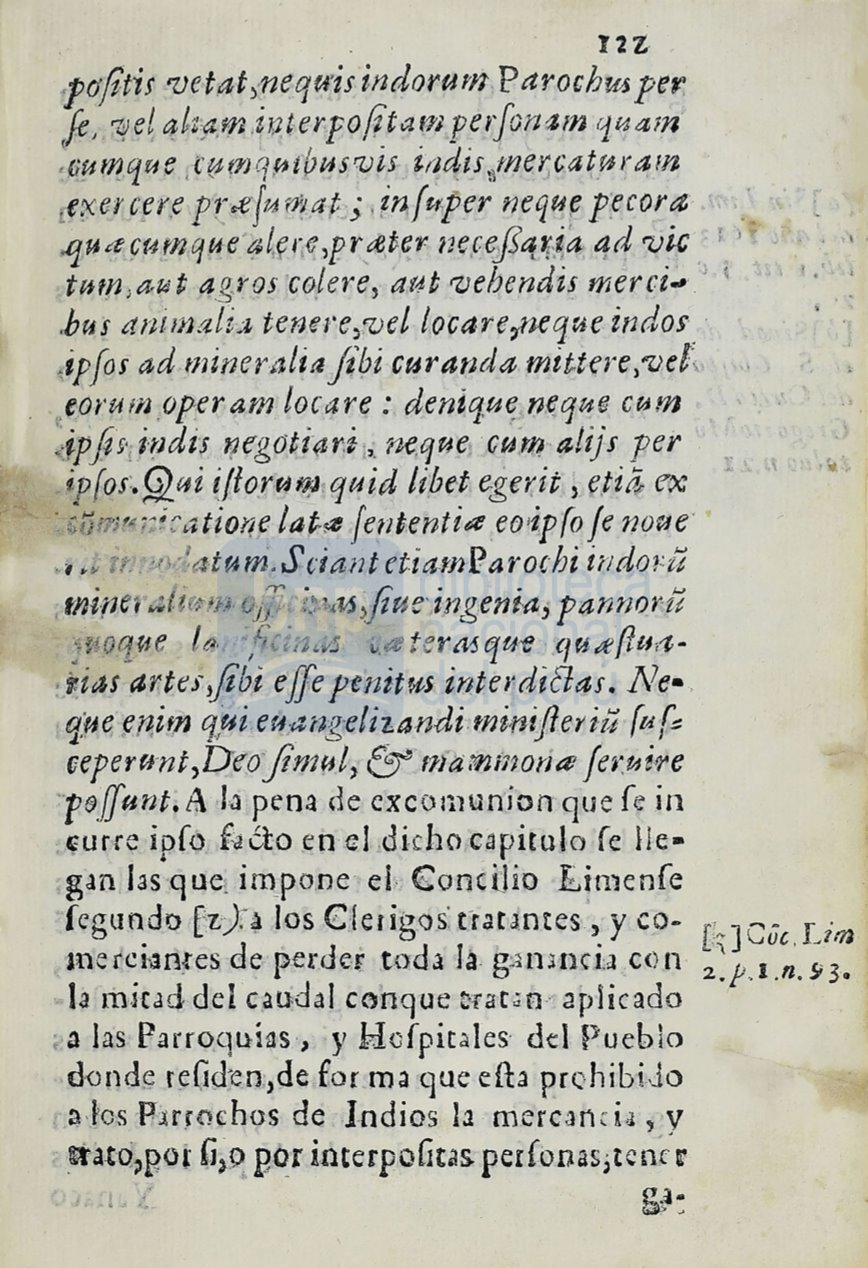 122
poſitis vetat, nequis indorum Parochus per
ſe, vel aliam interpoſitam perſonam quam
cumque cumquibusvis indis, mercaturam
exercere præſumat ; inſuper neque pecora
quæcumque alere, præter neceßaria ad vic
tum, aut agros colere, aut vehendis merci-
bus animalia tenere, vel locare, neque indos
ipſos ad mineralia ſibi curanda mittere, vel
eorum operam locare : denique neque cum
ipſis indis negotiari, neque cum alijs per
ipſos. Qui iſtorum quid libet egerit, etiã ex
atione latæ ſententiæ eo ipſo ſe noue
datum. Sciant etiam Parochi indorũ
mineralium officinas, ſiue ingenia, pannorũ
quoque cæterasque quæſtua-
rias artes, ſibi eſſe penitus interdictas. Ne-
que enim qui euangelizandi miniſteriũ ſuſ-
ceperunt, Deo ſimul, & mammonæ ſeruire
poſſunt. A la pena de excomunion que ſe in
curre ipſo facto en el dicho capitulo ſe lle-
gan las que impone el Concilio Limenſe
ſegundo [z) a los Clerigos tratantes, y co-
merciantes de perder toda la ganancia con
la mitad del caudal conque tratan aplicado
a las Parroquias, y Hoſpitales del Pueblo
donde reſiden, de for ma que eſta prohibido
a los Parrochos de Indios la mercancia, y
trato, por ſi, o por interpoſitas perſonas, tener
ga-
[z] Cõc. Lim
2. p. 1. n. 93.